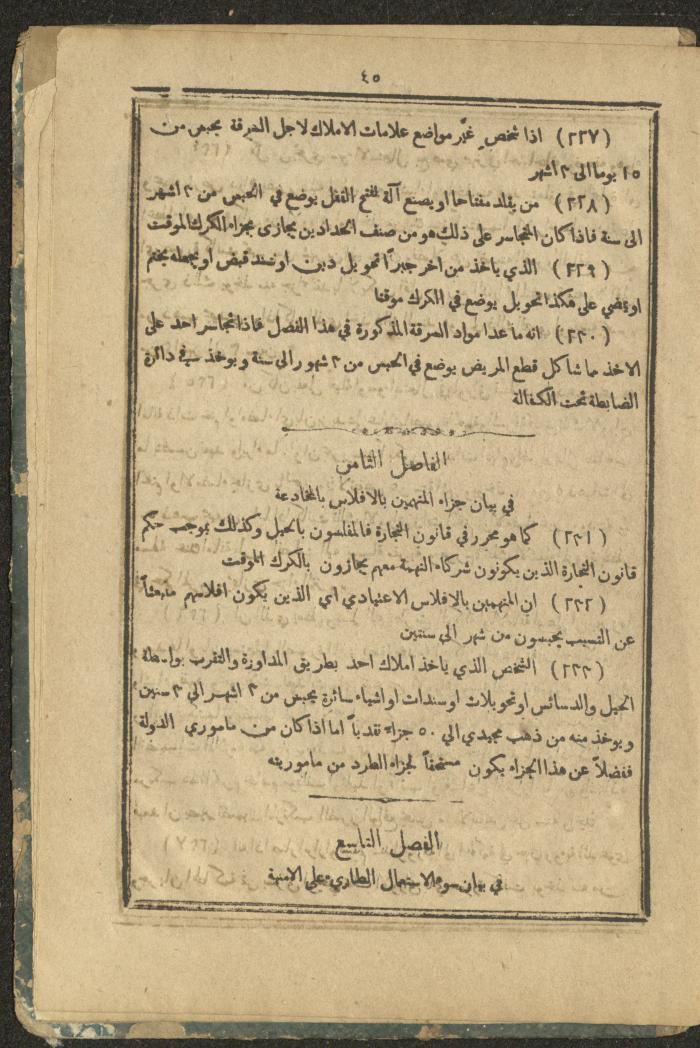 ٤٥
(٢٢٧) اذا شخص غيّر مواضع علامات الاملاك لاجل السرقة يحبس من
١٥ يوما الى ٣ اشهر
(٢٢٨) من يقلد مفتاحا او يصنع آلة لفتح القفل يوضع في الحبس من ٣ اشهر
الى سنة فاذا كان المتجاسر على ذلك هو من صنف الحدادين يجازى بجزاء الكرك الموقت
(٢٢٩) الذي ياخذ من اخر جبراً تحويل دين او سند قبض او يجعله يختم
او يمضي على هكذا تحويل يوضع في الكرك موقتا
(٢٣٠) انه ما عدا مواد السرقة المذكورة في هذا الفصل فاذا تجاسر احد على
الاخذ مما شاكل قطع المريض يوضع في الحبس من ٣ شهور الى سنة ويوخذ في دائرة
الضابطة تحت الكفالة
الفاصل الثامن
في بيان جزاء المتهمين بالافلاس بالمخادعة
(٢٣١) كما هو محرر في قانون التجارة فالمفلسون بالحيل وكذلك بموجب حكم
قانون التجارة الذين يكونون شركاء التهمة معهم يجازون بالكرك الموقت
(٢٣٢) ان المتهمين بالافلاس الاعتيادي اي الذين يكون افلاسهم منبعثاً
عن التسبب يحبسون من شهر الى سنتين
(٢٣٣) الشخص الذي ياخذ املاك احد بطريق المداورة والتقرب بواسطة
الحيل والدسائس او تحويلات او سندات او اشياء سائرة يحبس من ٣ اشهر الى ٣ سنين
ويوخذ منه من ذهب مجيدي الى ٥٠ جزاء نقدياً اما اذا كان من ماموري الدولة
ففضلاً عن هذا الجزاء يكون مستحقاً لجزاء الطرد من ماموريته
الفصل التاسع
في بيان سوء الاستعمال الطاريء على الامنية